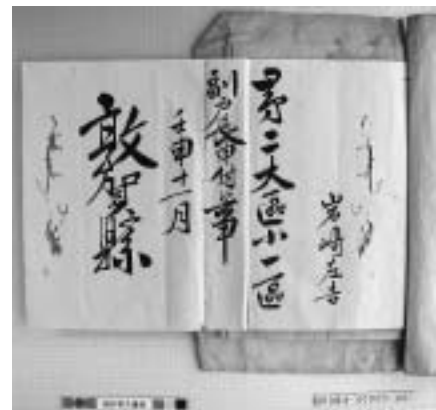 岩崎左吉
第二大區小一區
副戸長申付候事
壬申十一月
敦賀縣